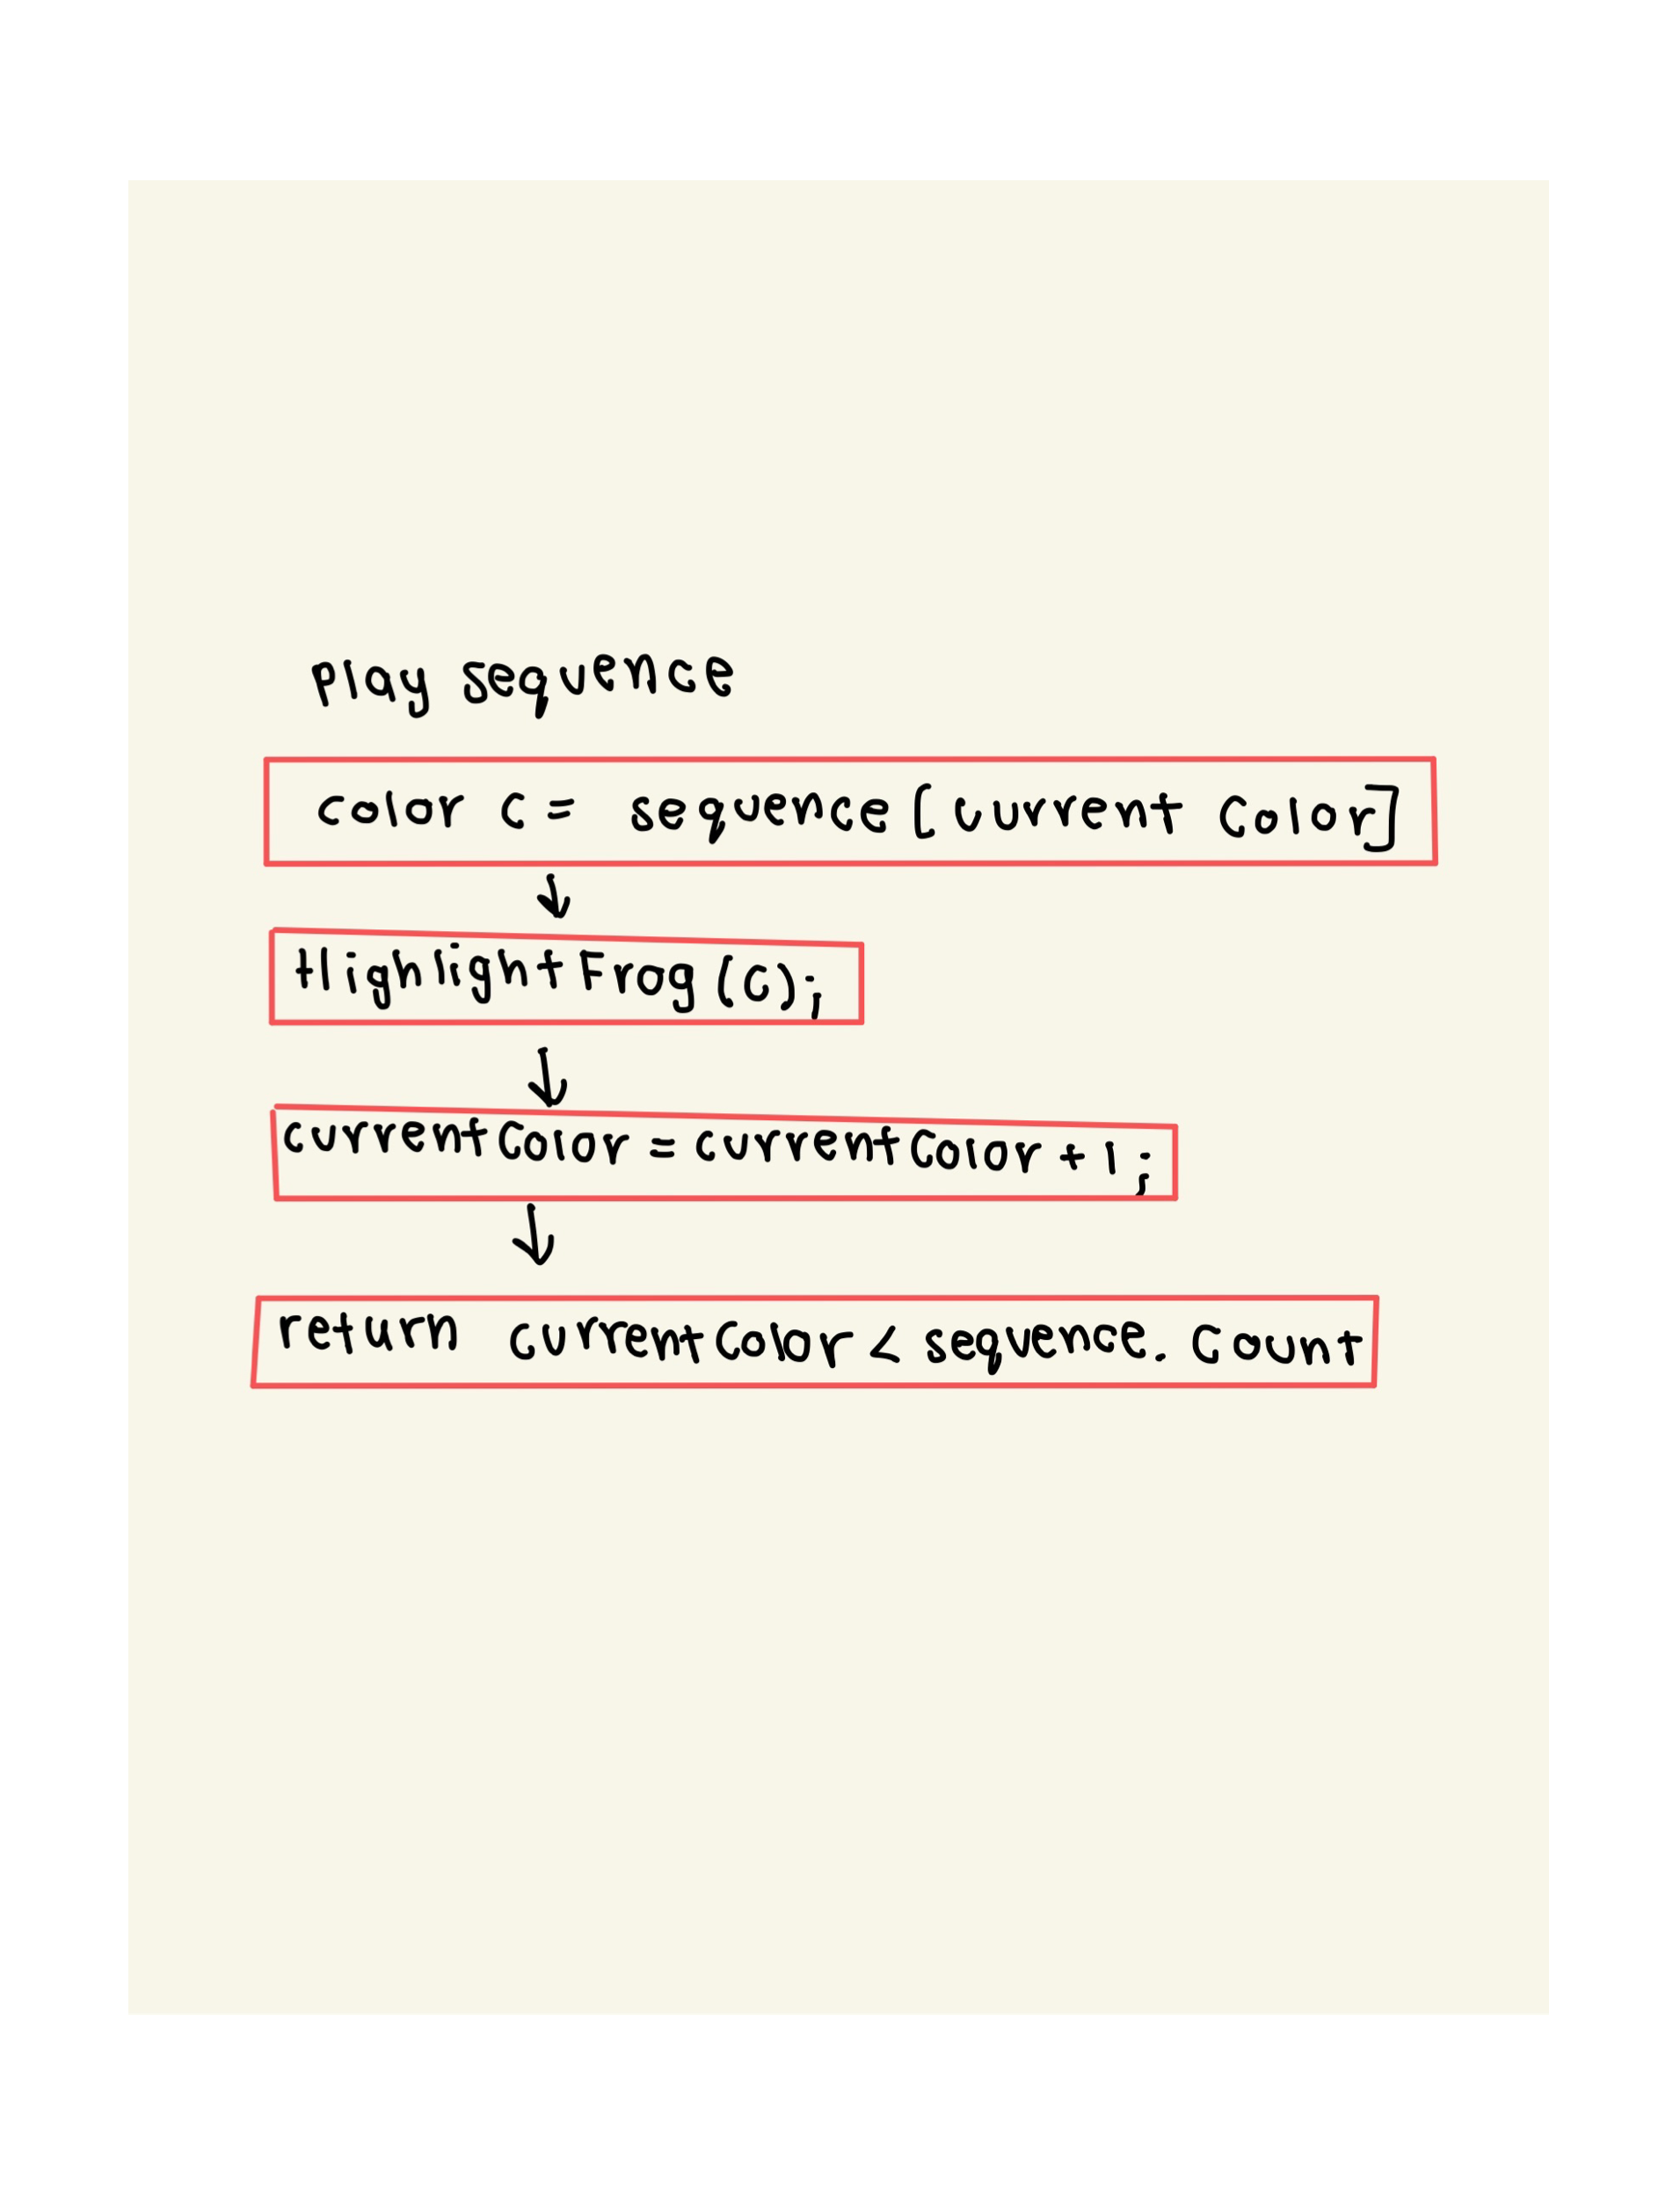 play sequence
color c = sequence [current color]
HlighlightFrog(c);
currentColor=currentColor+1;
return currentcolor<sequence.count